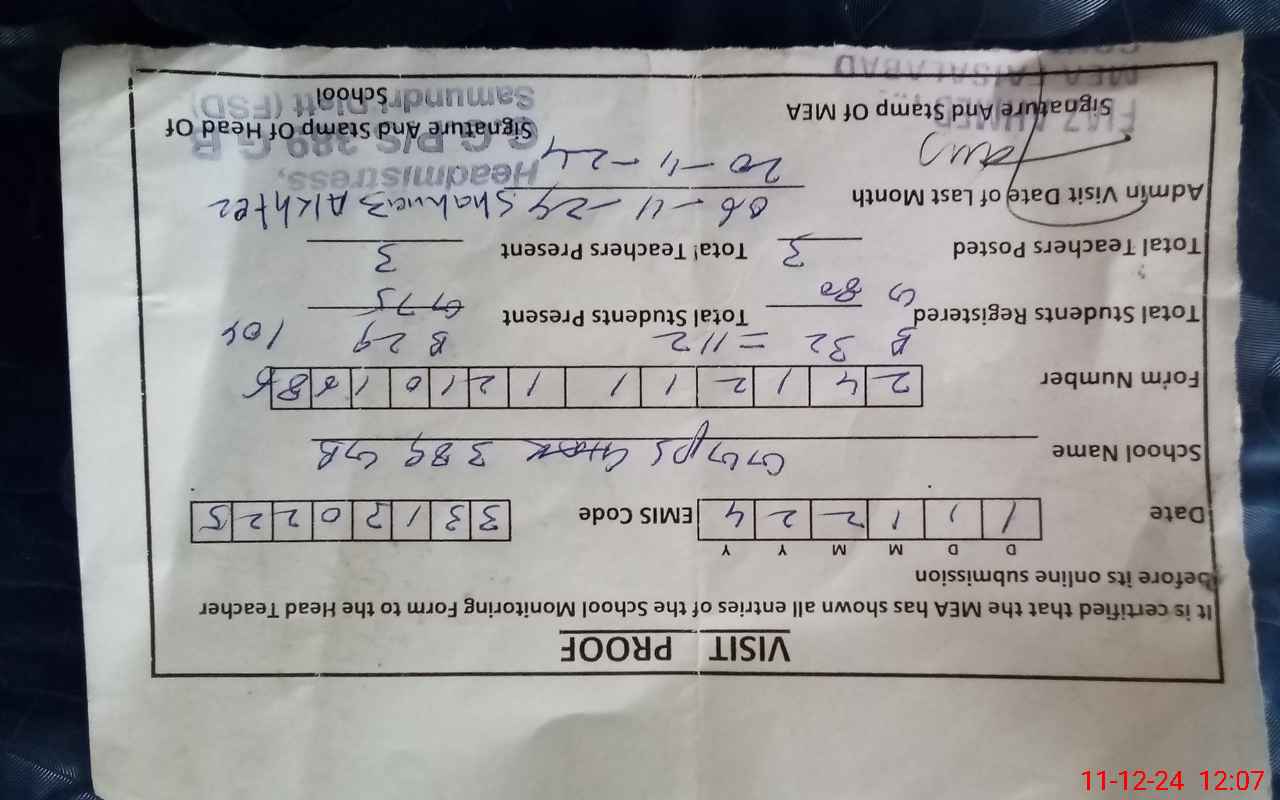 VISIT PROOF
It is certified that the MEA has shown all entries of the School Monitoring Form to the Head Teacher
before its online submission
D D M M Y Y
Date 1 1 1 2 2 4 EMIS Code 3 3 1 2 0 2 2 5
School Name GGPS 389 GB
Form Number 2 4 1 2 1 1 1 2 1 0 1 8
B 32 = 112 B 29 104
Total Students Registered G 80 Total Students Present G 75
Total Teachers Posted 3 Total Teachers Present 3
Admin Visit Date of Last Month 06-11-24 Shahnaz Akhter
20-11-24
Headmistress,
G.G.P/S 389 G.B
Samundri Distt (FSD)
Signature And Stamp Of MEA Signature And Stamp Of Head Of
School
MEA FAISALABAD
11-12-24 12:07